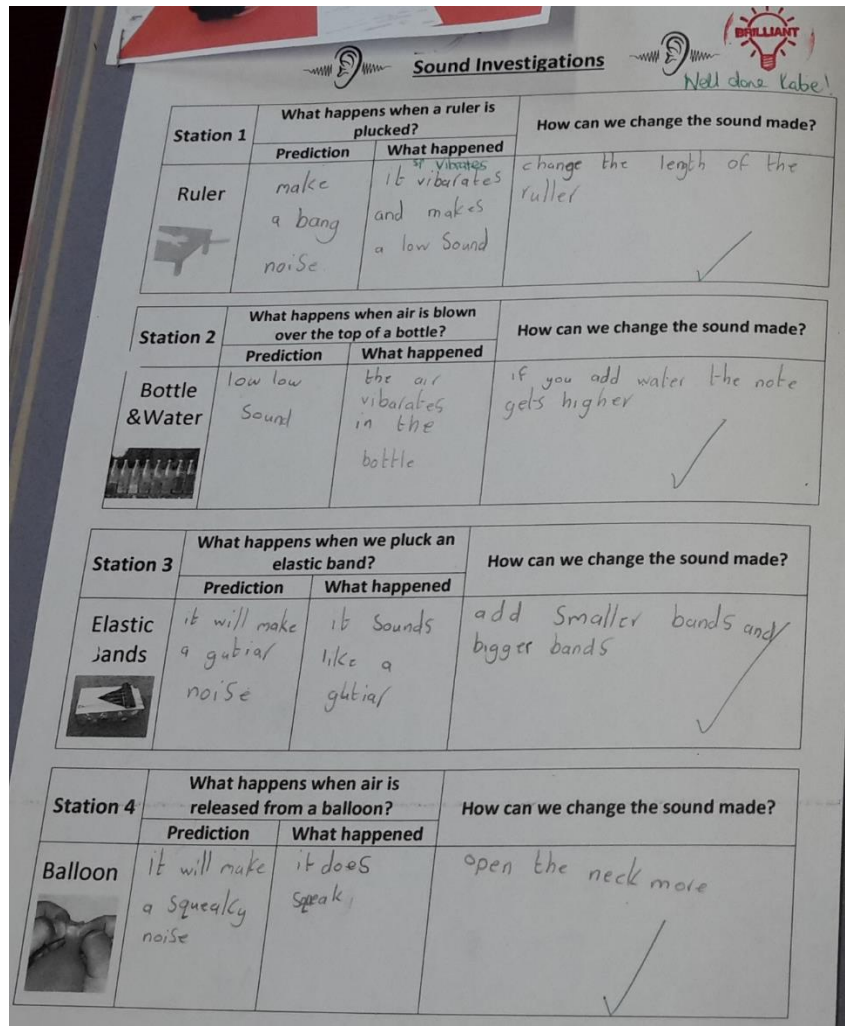 BRILLIANT
Sound Investigations
Well done Kabe!
Station 1
What happens when a ruler is
plucked?
How can we change the sound made?
Prediction
What happened
Ruler
make
a bang
noise
sp vibrates
it vibarates
and makes
a low Sound
change the length of the
ruller
Station 2
What happens when air is blown
over the top of a bottle?
How can we change the sound made?
Prediction
What happened
Bottle
&Water
low low
Sound
the air
vibarates
in the
bottle
if you add water the note
gets higher
Station 3
What happens when we pluck an
elastic band?
How can we change the sound made?
Prediction
What happened
Elastic
bands
it will make
a gutiar
noise
it Sounds
like a
gutiar
add Smaller bands and
bigger bands
Station 4
What happens when air is
released from a balloon?
How can we change the sound made?
Prediction
What happened
Balloon
it will make
a squeaky
noise
it does
sqeak
open the neck more